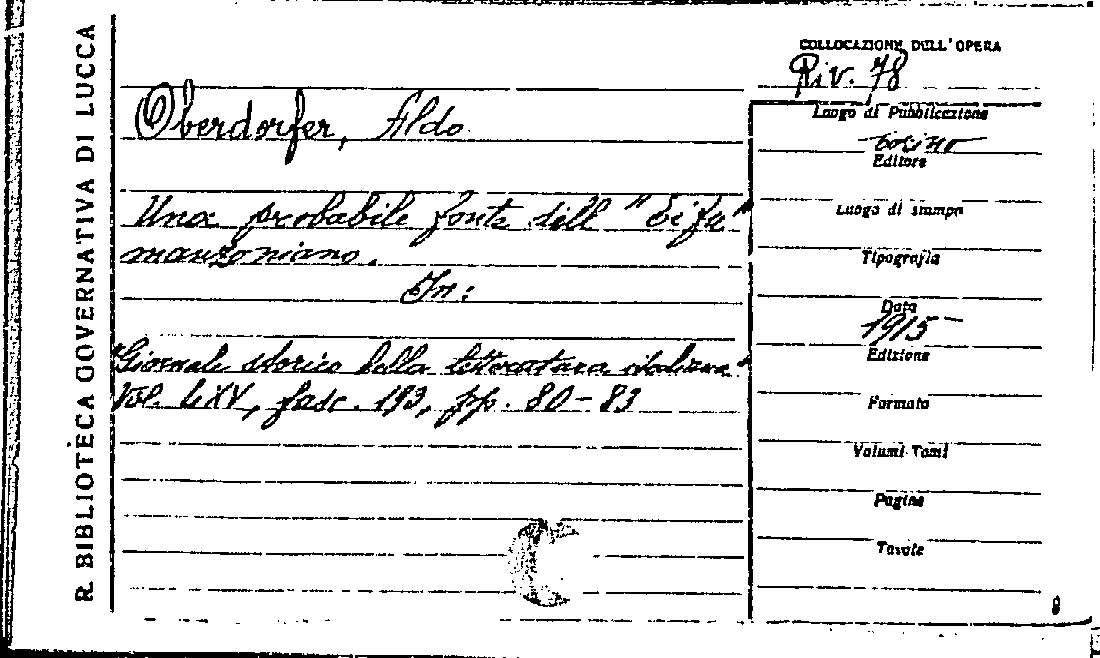 R. BIBLIOTECA GOVERNATIVA DI LUCCA
COLLOCAZIONE DELL'OPERA
Riv. 78
Oberdorfer, Aldo
Una probabile fonte dell'
manzoniano.
In:
"Giornale storico della letteratura italiana"
Vol. LXV, fasc. 193, pp. 80-83
Luogo di Pubblicazione
Torino
Editore
Luogo di stampa
Tipografia
Data
1915
Edizione
Formato
Volumi-Tomi
Pagine
Tavole